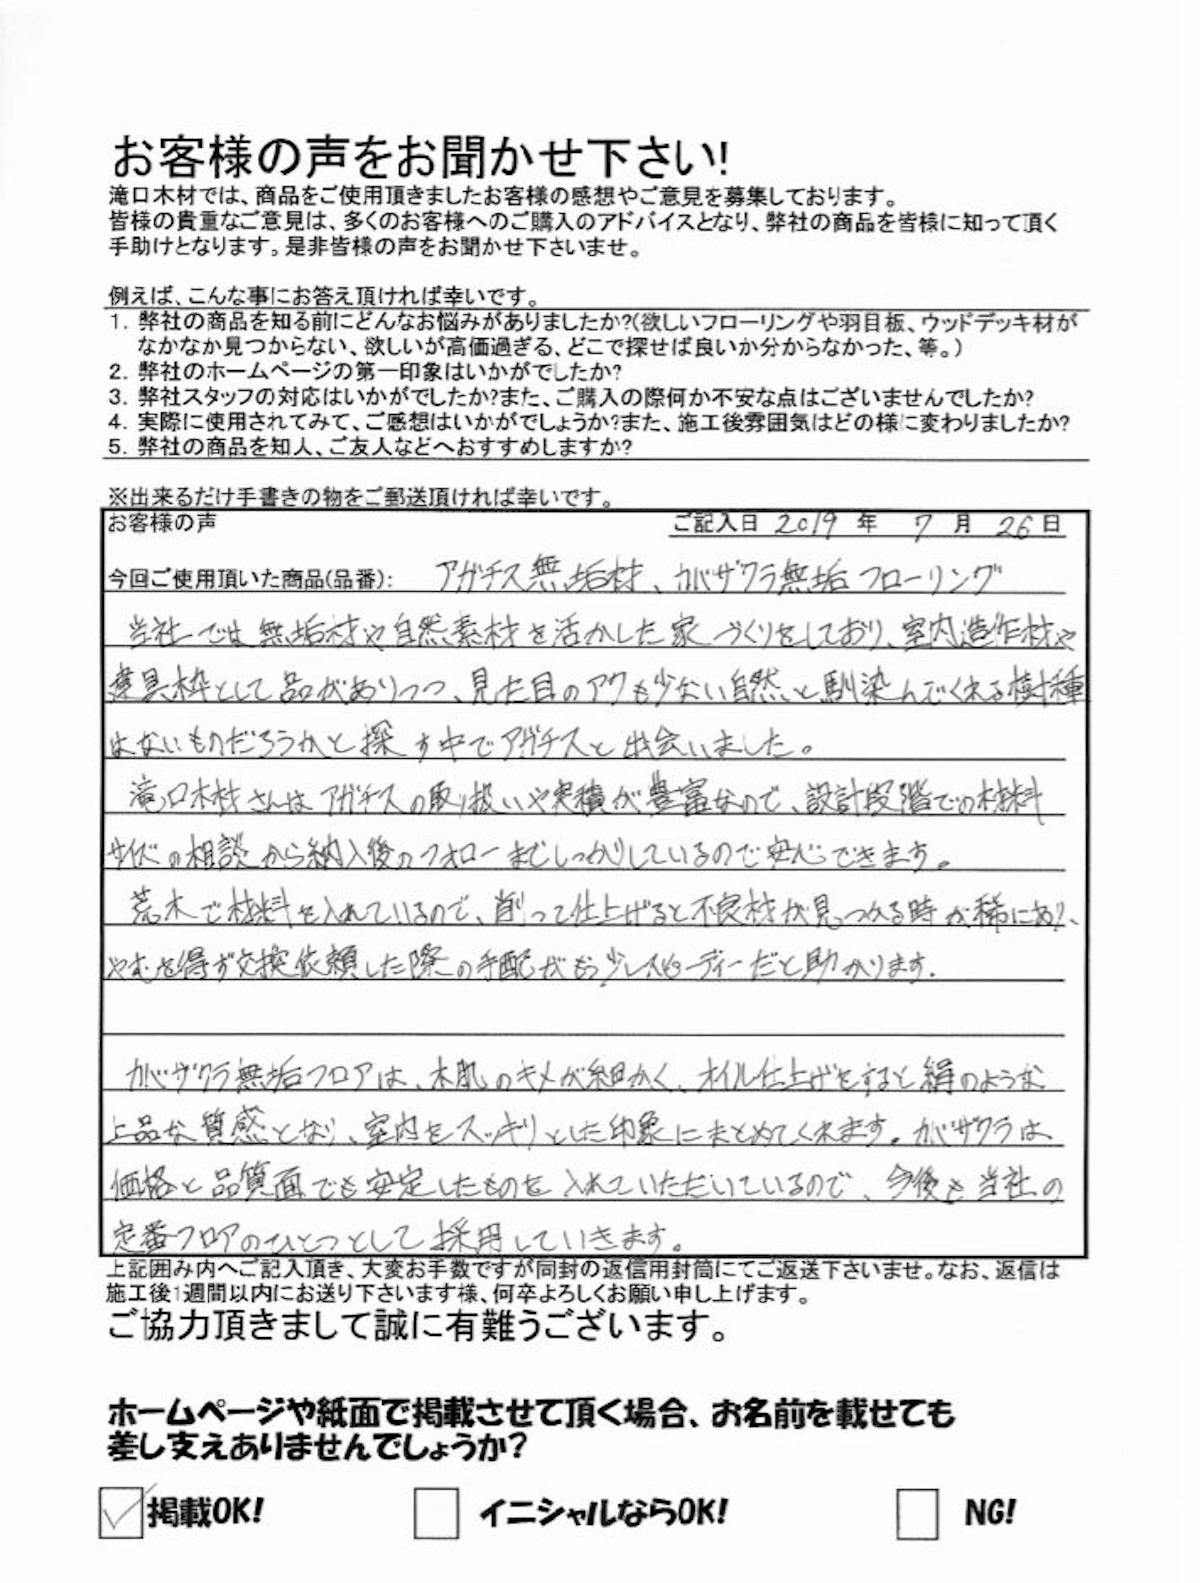 お客様の声をお聞かせ下さい!
滝口木材では、商品をご使用頂きましたお客様の感想やご意見を募集しております。
皆様の貴重なご意見は、多くのお客様へのご購入のアドバイスとなり、弊社の商品を皆様に知って頂く
手助けとなります。是非皆様の声をお聞かせ下さいませ。
例えば、こんな事にお答え頂ければ幸いです。
1. 弊社の商品を知る前にどんなお悩みがありましたか?(欲しいフローリングや羽目板、ウッドデッキ材が
なかなか見つからない、欲しいが高価過ぎる、どこで探せば良いか分からなかった、等。)
2. 弊社のホームページの第一印象はいかがでしたか?
3. 弊社スタッフの対応はいかがでしたか?また、ご購入の際何か不安な点はございませんでしたか?
4. 実際に使用されてみて、ご感想はいかがでしょうか?また、施工後雰囲気はどの様に変わりましたか?
5. 弊社の商品を知人、ご友人などへおすすめしますか?
※出来るだけ手書きの物をご郵送頂ければ幸いです。
お客様の声 ご記入日 2019 年 7 月 26 日
今回ご使用頂いた商品(品番): アガチス無垢材、カバザクラ無垢フローリング
当社では無垢材や自然素材を活かした家づくりをしており、室内造作材や
建具枠として品がありつつ、見た目のアクも少ない自然と馴染んでくれる樹種
はないものだろうかと探す中でアガチスと出会いました。
滝口木材さんはアガチスの取り扱いや実績が豊富なので、設計段階での材料
サイズの相談から納入後のフォローまでしっかりしているので安心できます。
荒木で材料を入れているので、削って仕上げると不良材が見つかる時が稀にあり、
やむを得ず交換依頼した際の手配がもう少しスピーディーだと助かります。
カバザクラ無垢フロアは、木肌のキメが細かく、オイル仕上げをすると絹のような
上品な質感となり、室内をスッキリとした印象にまとめてくれます。カバザクラは、
価格と品質面でも安定したものを入れていただいているので、今後も当社の
定番フロアのひとつとして採用していきます。
上記囲み内へご記入頂き、大変お手数ですが同封の返信用封筒にてご返送下さいませ。なお、返信は
施工後1週間以内にお送り下さいます様、何卒よろしくお願い申し上げます。
ご協力頂きまして誠に有難うございます。
ホームページや紙面で掲載させて頂く場合、お名前を載せても
差し支えありませんでしょうか?
掲載OK! イニシャルならOK! NG!